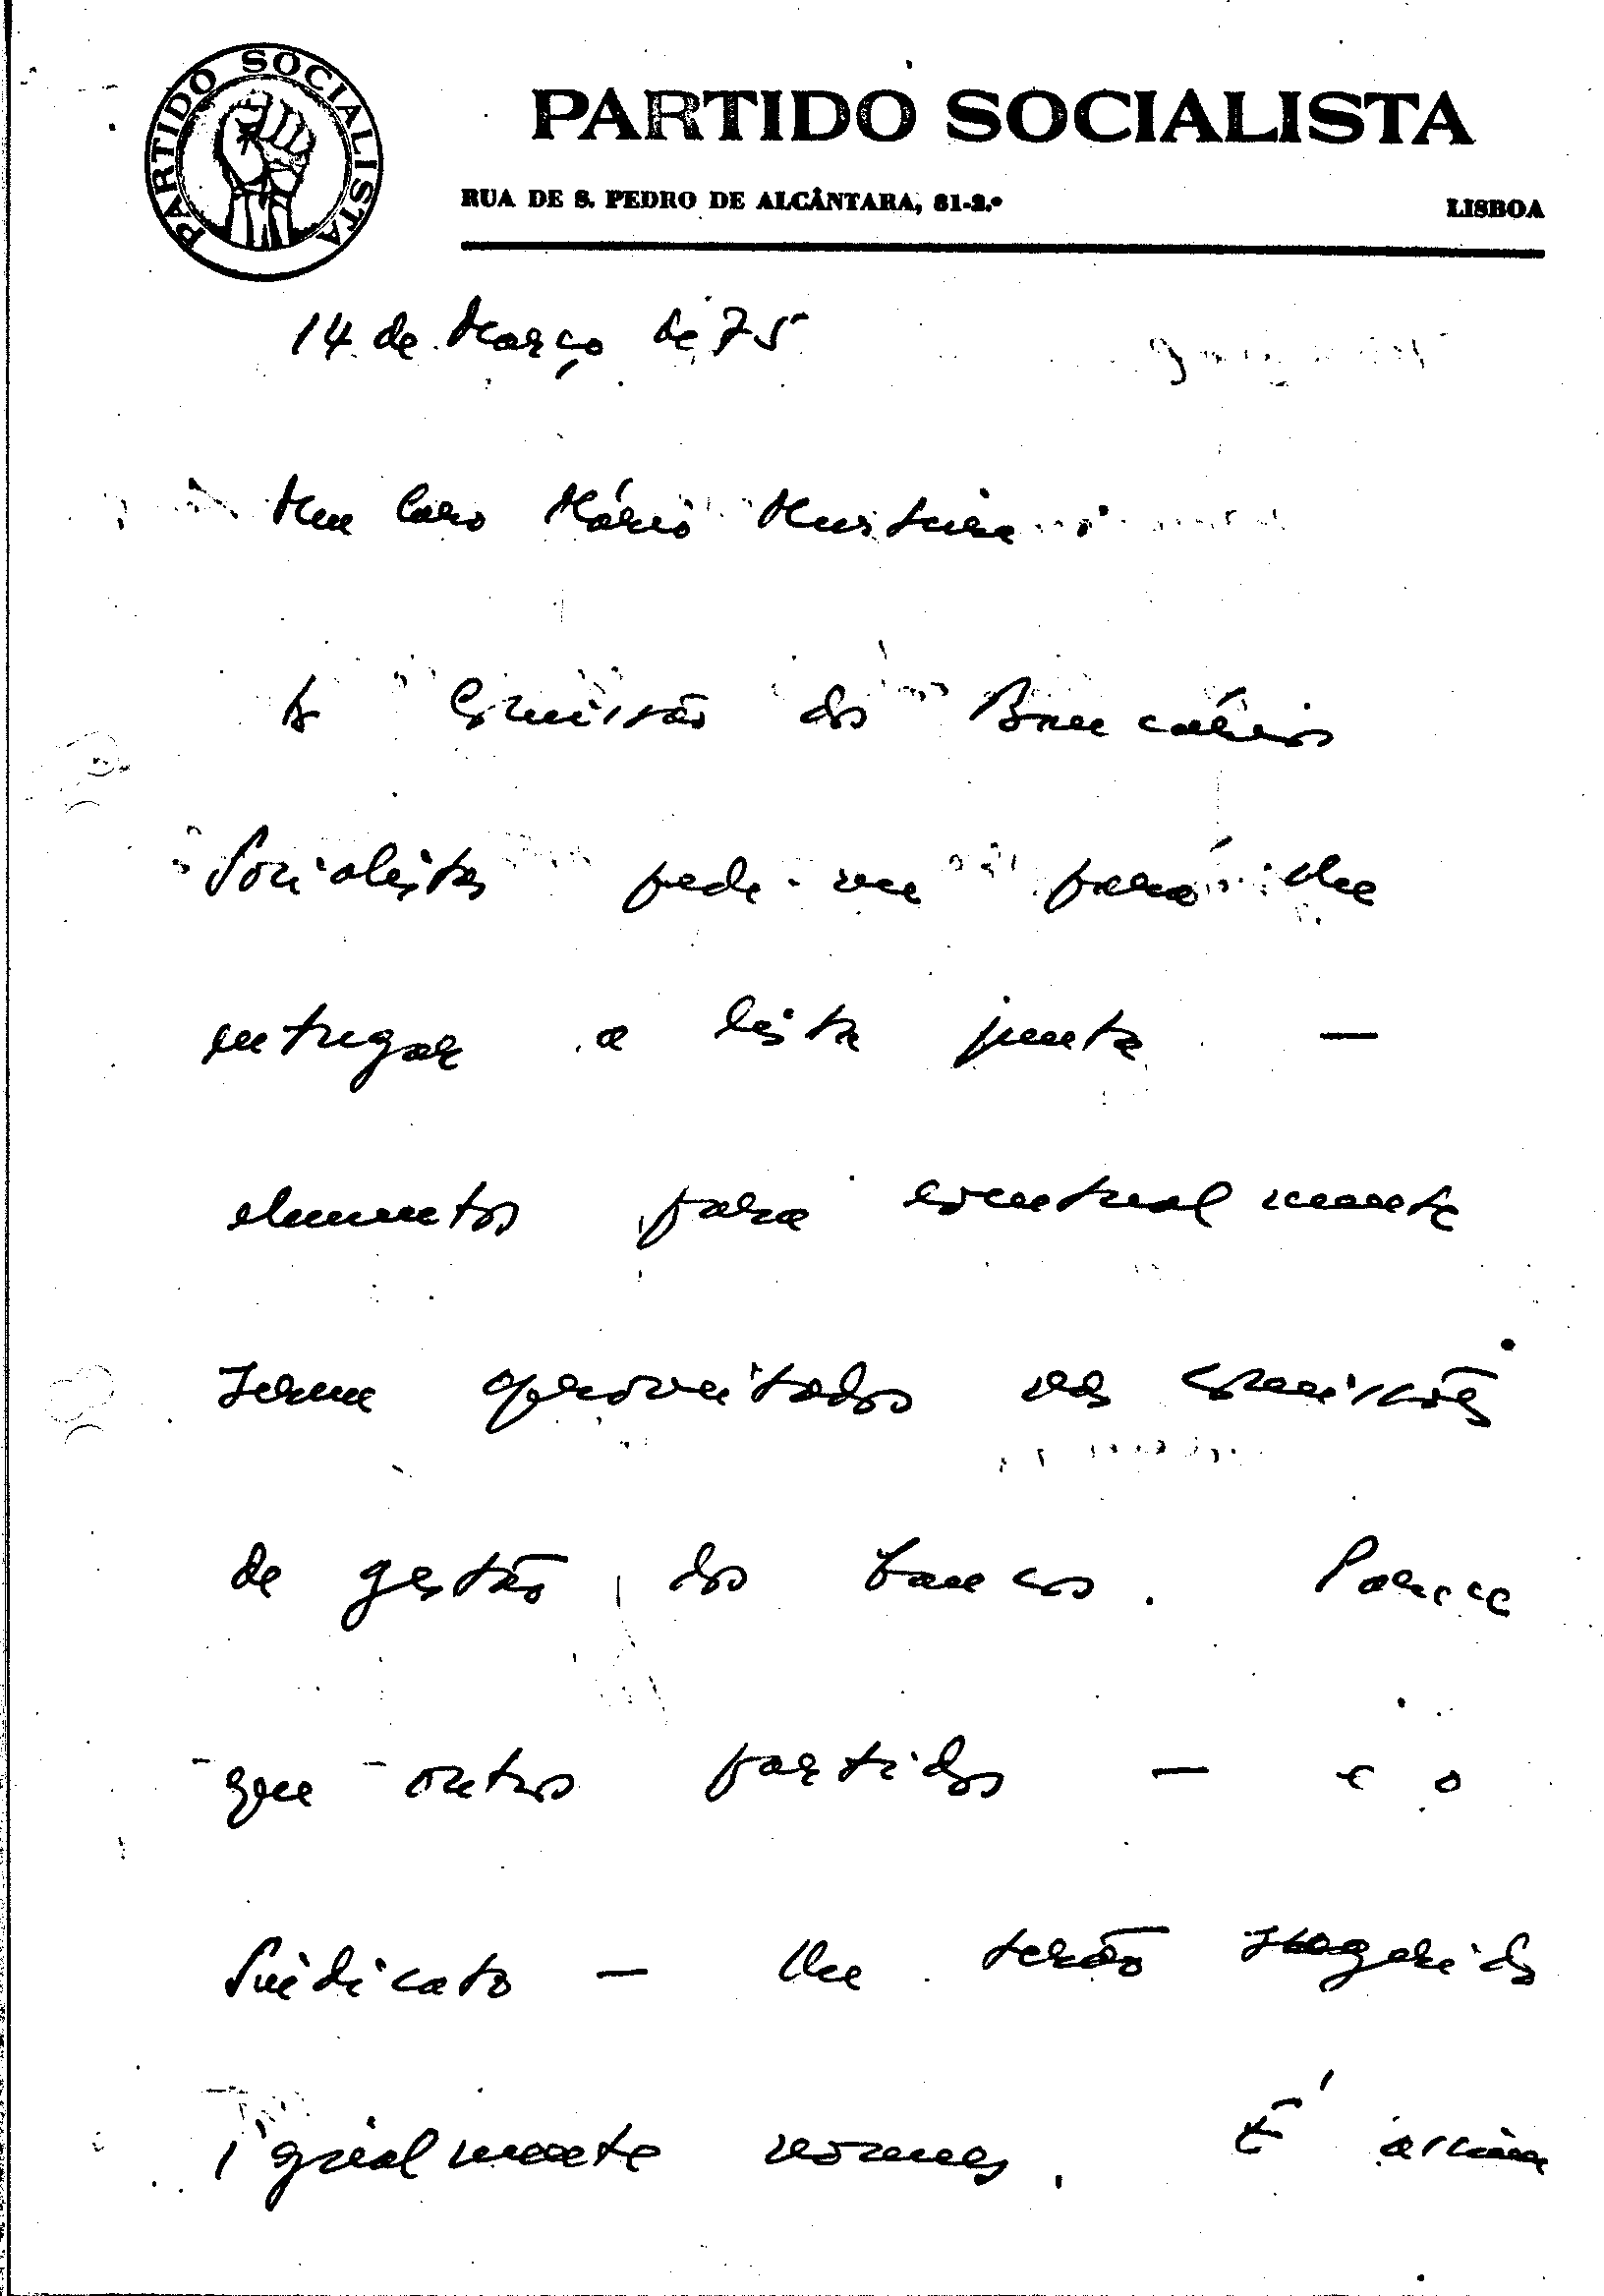 PARTIDO SOCIALISTA
PARTIDO SOCIALISTA
RUA DE S. PEDRO DE ALCÂNTARA, 81-2.º
LISBOA
14 de Março de 75
Meu Caro Mário Murteira
A Comissão dos Bancários
Socialistas pede-me para lhe
entregar a lista junta —
elementos para eventualmente
serem aproveitados nas comissões
de gestão dos bancos. Parece
que outros partidos — e o
Sindicato — lhe terão sugerido
igualmente nomes. É assim